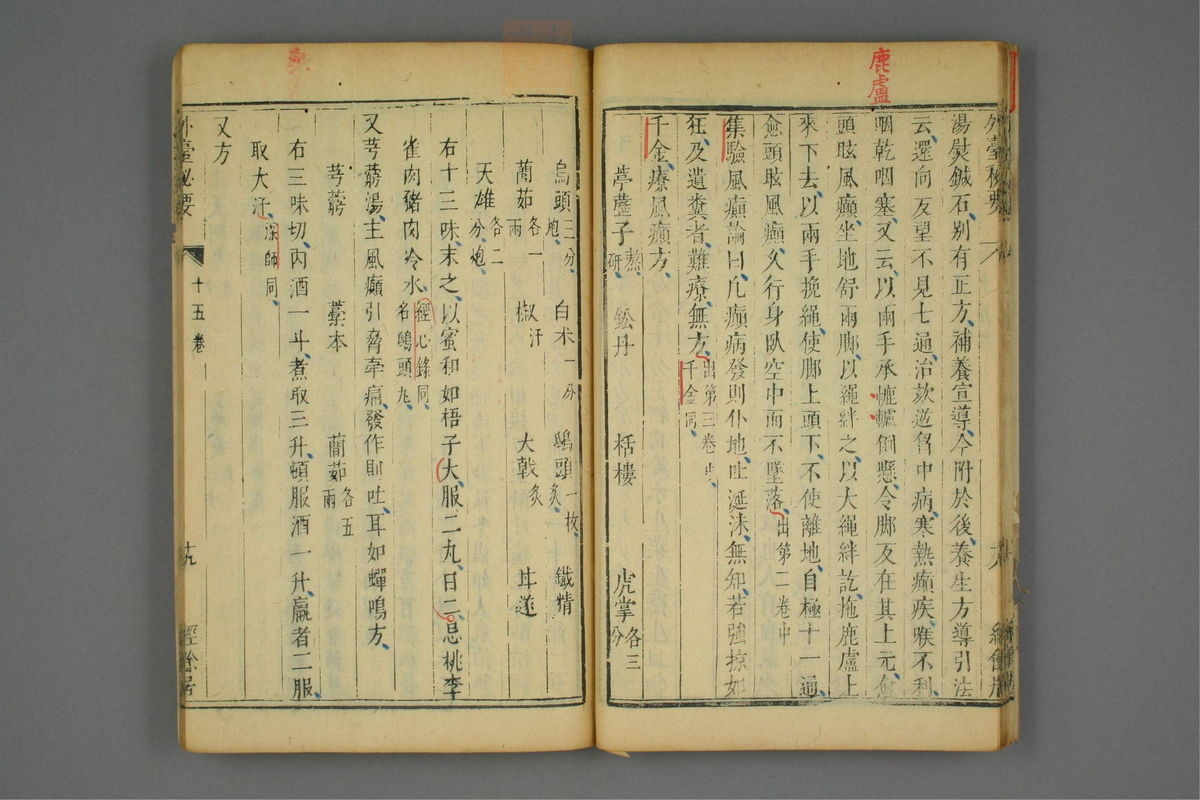 鹿盧
外臺秘要
湯熨鍼石別有正方補養宣導今附於後養生方導引法
云還向反望不見七通治欬逆胷中病寒熱癲疾喉不利
咽乾咽塞又云以兩手承轆轤倒懸令脚反在其上元愈
頭眩風癲坐地舒兩脚以繩絆之以大繩絆訖拖鹿盧上
來下去以兩手挽繩使脚上頭下不使離地自極十二通
愈頭眩風癲久行身臥空中而不墜落出第二卷中
集驗風癲論曰凡癲病發則仆地吐涎沫無知若強掠如
狂及遺糞者難療無方出第三卷中千金同
千金療風癲方
葶藶子熬研 鈆丹 栝樓 虎掌各三分
烏頭三分炮 白朮一分 鴟頭一枚炙 鐵精
䕡茹各一兩 椒汗 大戟炙 甘遂
天雄各二分炮
右十三味末之以蜜和如梧子大服二丸日二忌桃李
雀肉豬肉冷水經心錄同名鴟頭丸
又芎藭湯主風癲引脅牽痛發作則吐耳如蟬鳴方
芎藭 藁本 䕡茹各五兩
右三味切內酒一斗煮取三升頓服酒一升羸者二服
取大汗深師同
又方
外臺秘要 十五卷 十九 經餘居